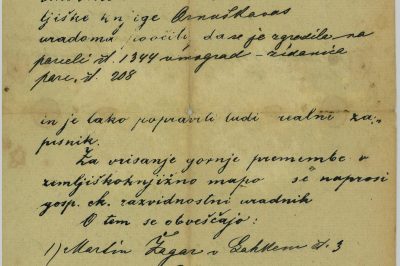 ljiško knjige Arnuškavas
uradoma poočiti, da se je zgradila na
parceli št. 1344 vinograd – zidanica
parc. št. 208
in je tako popraviti tudi realni za-
pisnik.
Za vrisanje gornje premembe v
zemljiškoknjižno mapo se naprosi
gosp. ck. razvidnostni uradnik
O tem se obveščajo:
1) Martin Žagar v št. 3